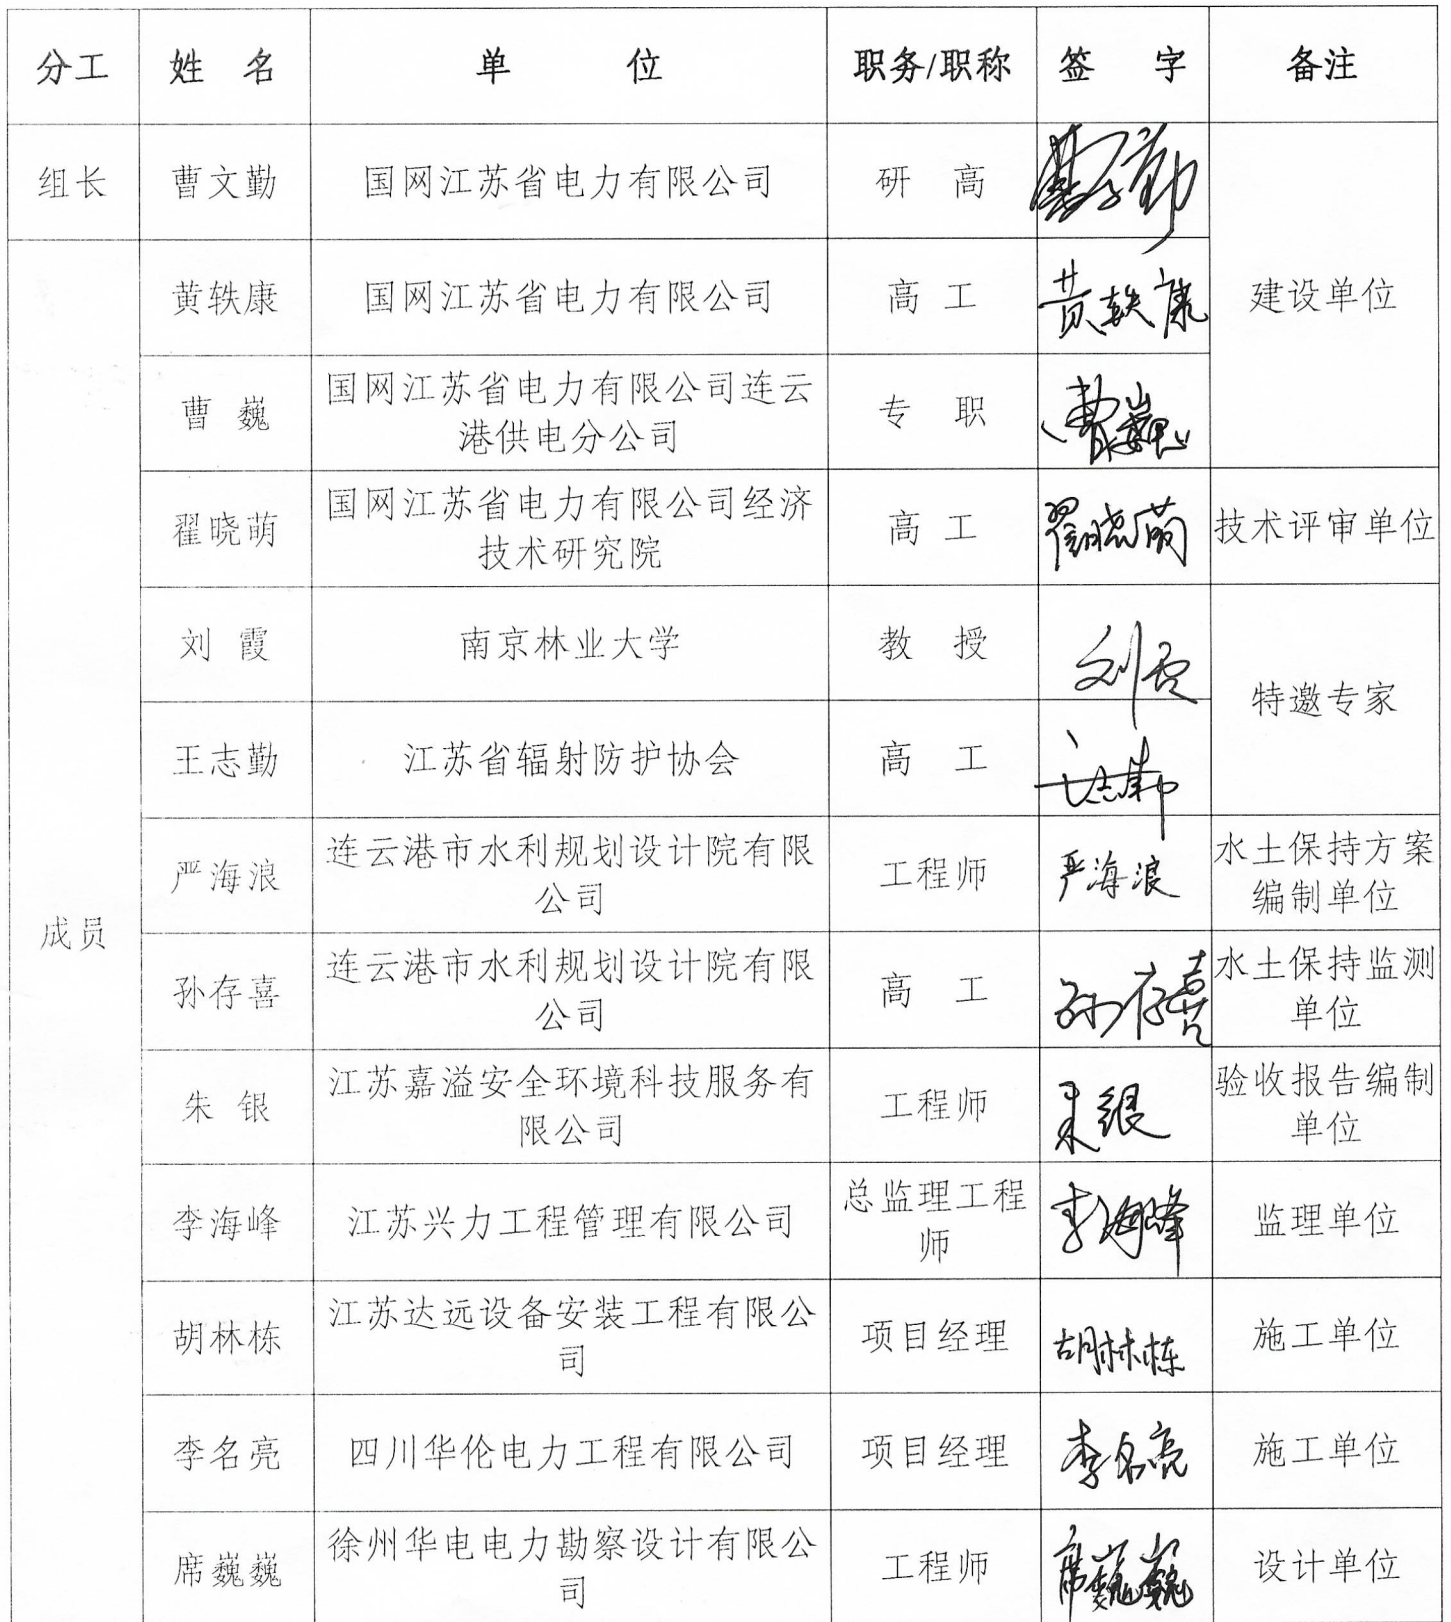 分工 姓 名 单 位 职务/职称 签 字 备注
组长 曹文勤 国网江苏省电力有限公司 研 高 曹文勤
黄轶康 国网江苏省电力有限公司 高 工 黄轶康 建设单位
曹 巍 国网江苏省电力有限公司连云
港供电分公司 专 职 曹巍
翟晓萌 国网江苏省电力有限公司经济
技术研究院 高 工 翟晓萌 技术评审单位
刘 霞 南京林业大学 教 授 刘霞
特邀专家
王志勤 江苏省辐射防护协会 高 工 王志勤
严海浪 连云港市水利规划设计院有限
公司 工程师 严海浪 水土保持方案
编制单位
成员
孙存喜 连云港市水利规划设计院有限
公司 高 工 孙存喜 水土保持监测
单位
朱 银 江苏嘉溢安全环境科技服务有
限公司 工程师 朱银 验收报告编制
单位
李海峰 江苏兴力工程管理有限公司 总监理工程
师 李海峰 监理单位
胡林栋 江苏达远设备安装工程有限公
司 项目经理 胡林栋 施工单位
李名亮 四川华伦电力工程有限公司 项目经理 李名亮 施工单位
席巍巍 徐州华电电力勘察设计有限公
司 工程师 席巍巍 设计单位